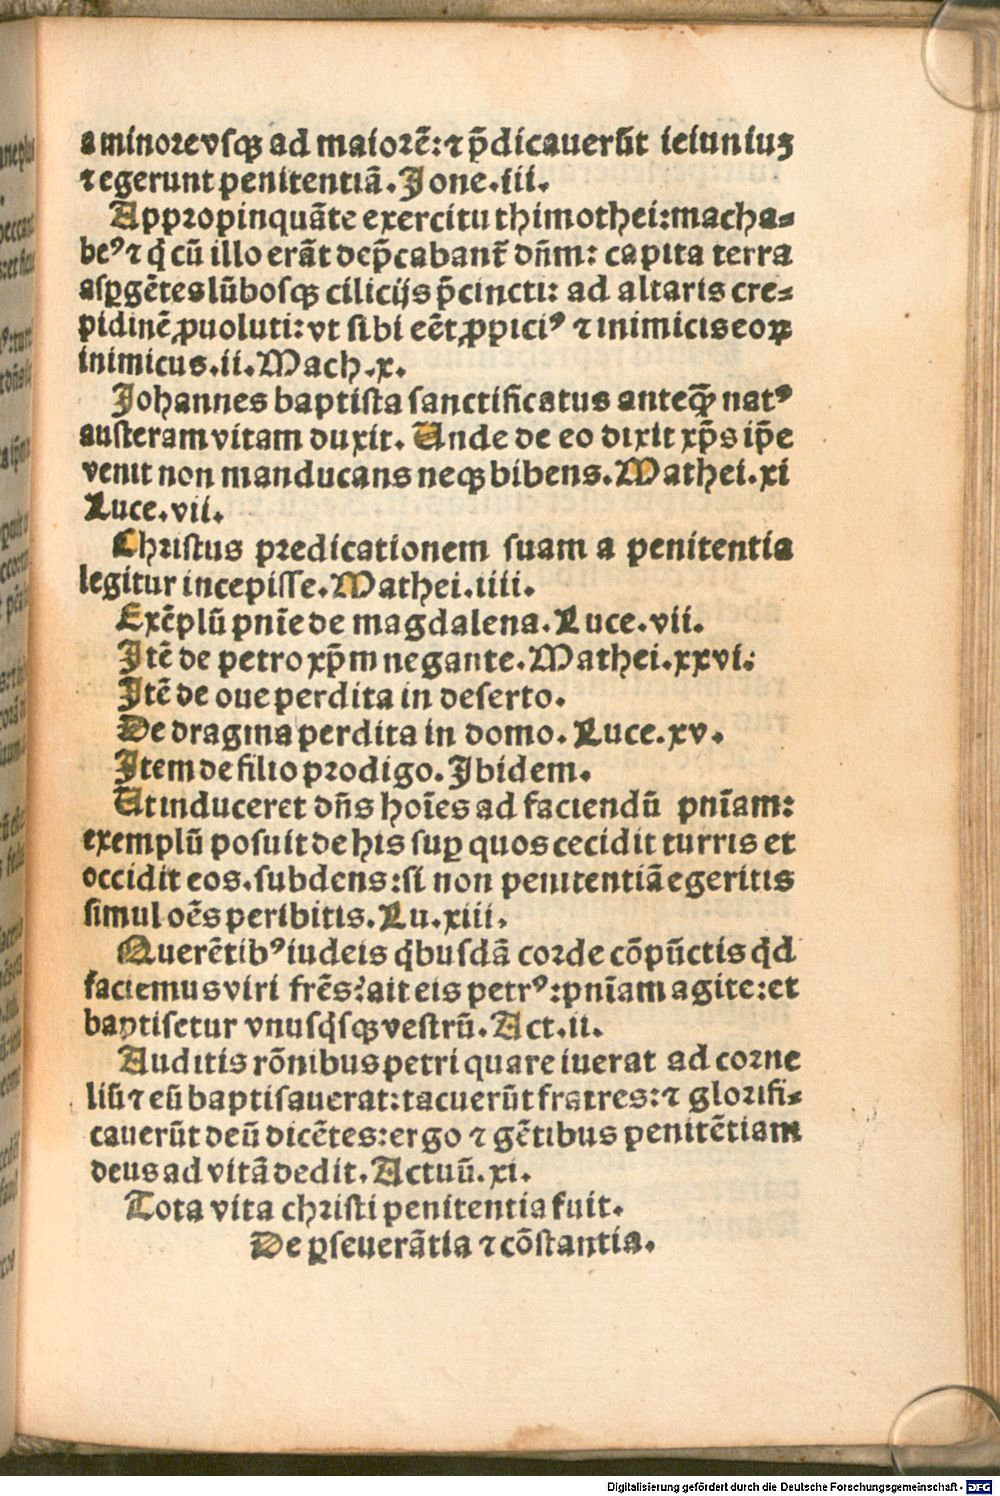 a minore vsqꝫ ad maiorē: ⁊ p̄dicauerūt ieiuniuꝫ
⁊ egerunt penitentiā. Jone. iii.
Appropinquāte exercitu thimothei: macha-
beꝰ ⁊ q̇ cū illo erāt dep̄cabant̄ dn̄m: capita terra
asꝑgētes lūbosqꝫ cilicijs p̄cincti: ad altaris cre-
pidinē ꝓuoluti: vt sibi eēt ꝓpiciꝰ ⁊ inimicis eoꝝ
inimicus. ii. Mach. x.
Johannes baptista sanctificatus anteqꝫ̄ natꝰ
austeram vitam duxit. Unde de eo dixit xp̄s ip̄e
venit non manducans neqꝫ bibens. Mathei. xi
Luce. vii.
Christus predicationem suam a penitentia
legitur incepisse. Mathei. iiii.
Exēplū pnīe de magdalena. Luce. vii.
Jtē de petro xp̄m negante. Mathei. xxvi.
Jtē de oue perdita in deserto.
De dragma perdita in domo. Luce. xv.
Jtem de filio prodigo. Jbidem.
Ut induceret dn̄s hoīes ad faciendū pnīam:
exemplū posuit de his suꝑ quos cecidit turris et
occidit eos. subdens: si non penitentiā egeritis
simul oēs peribitis. Lu. xiii.
Querētibꝰ iudeis q̇busdā corde cōpūctis q̇d
faciemus viri frēs? ait eis petrꝰ: pnīam agite: et
baptisetur vnusq̇sqꝫ vestrū. Act. ii.
Auditis rōnibus petri quare iuerat ad corne
liū ⁊ eū baptisauerat: tacuerūt fratres: ⁊ glorifi-
cauerūt deū dicētes: ergo ⁊ gētibus penitētiam
deus ad vitā dedit. Actuū. xi.
Tota vita christi penitentia fuit.
De ꝑseuerātia ⁊ cōstantia.
Digitalisierung gefördert durch die Deutsche Forschungsgemeinschaft - DFG